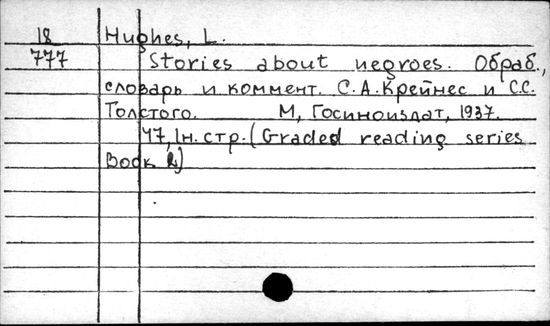 18 Hughes, L.
777 Stories about negroes. Обраб.,
словарь и коммент. С.А.Крейнес и С.С.
Толстого. М, Госиноиздат, 1937.
47, 1н. стр. (Graded reading series
Book 2)